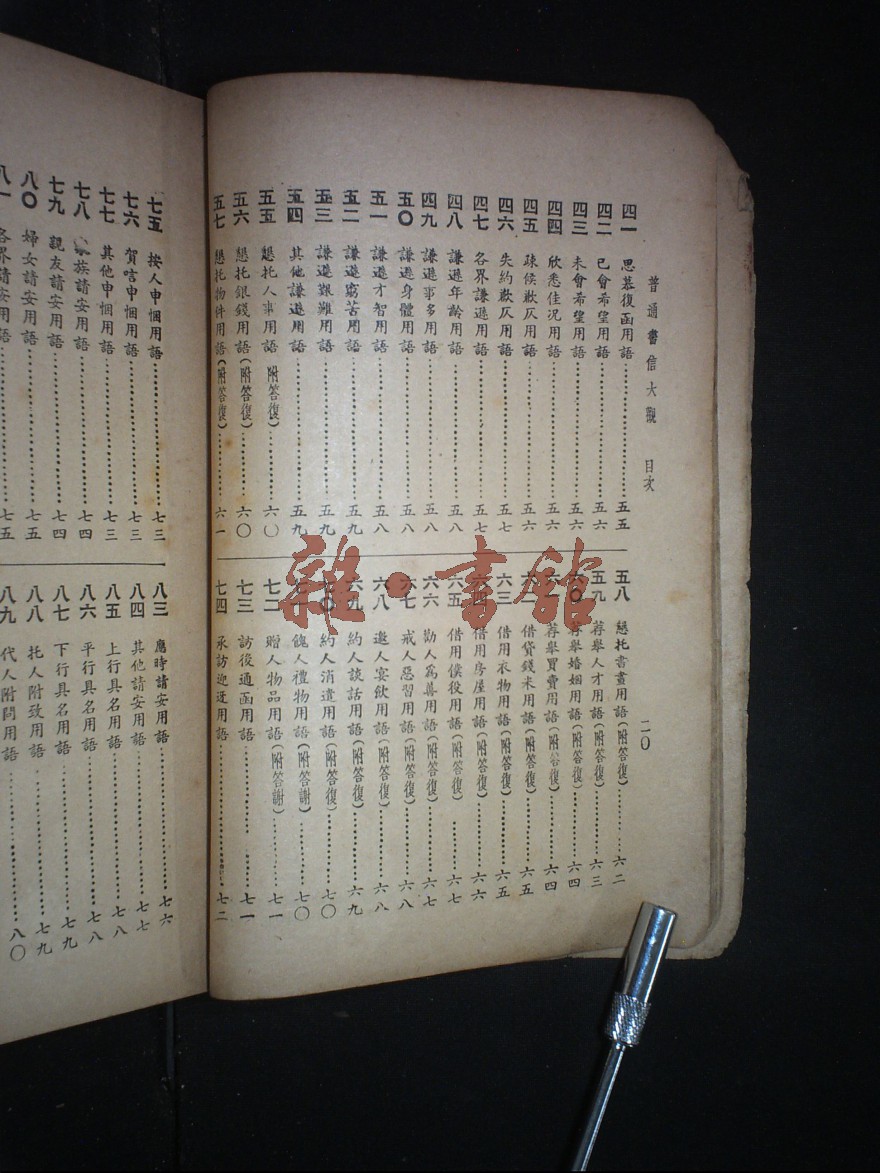 普通書信大觀 目次 二〇
四一 思慕復函用語 五五
四二 已會希望用語 五六
四三 未會希望用語 五六
四四 欣悉佳况用語 五六
四五 疎候歉仄用語 五六
四六 失約歉仄用語 五七
四七 各界謙遜用語 五七
四八 謙遜年齡用語 五八
四九 謙遜事多用語 五八
五〇 謙遜身體用語 五八
五一 謙遜才智用語 五八
五二 謙遜窮苦用語 五九
五三 謙遜艱難用語 五九
五四 其他謙遜用語 五九
五五 懇托人事用語(附答復) 六〇
五六 懇托銀錢用語(附答復) 六〇
五七 懇托物件用語(附答復) 六一
五八 懇托書畫用語(附答復) 六二
五九 荐舉人才用語(附答復) 六三
六〇 荐舉婚姻用語(附答復) 六四
荐舉買賣用語(附答復) 六四
六二 借貸錢米用語(附答復) 六五
六三 借用衣物用語(附答復) 六五
六四 借用房屋用語(附答復) 六六
六五 借用僕役用語(附答復) 六七
六六 勸人爲善用語(附答復) 六七
六七 戒人惡習用語(附答復) 六八
六八 邀人宴飲用語(附答復) 六八
六九 約人談話用語(附答復) 六九
七〇 約人消遣用語(附答復) 七〇
七一 餽人禮物用語(附答謝) 七〇
七二 贈人物品用語(附答謝) 七一
七三 訪後通函用語 七一
七四 承訪迎迓用語 七二
七五 按人申悃用語 七三
七六 賀言申悃用語 七三
七七 其他申悃用語 七三
七八 家族請安用語 七四
七九 親友請安用語 七四
八〇 婦女請安用語 七五
八一 各界請安用語 七五
八三 應時請安用語 七六
八四 其他請安用語 七七
八五 上行具名用語 七八
八六 平行具名用語 七八
八七 下行具名用語 七九
八八 托人附致用語 七九
八九 代人附問用語 八〇
雜·書館